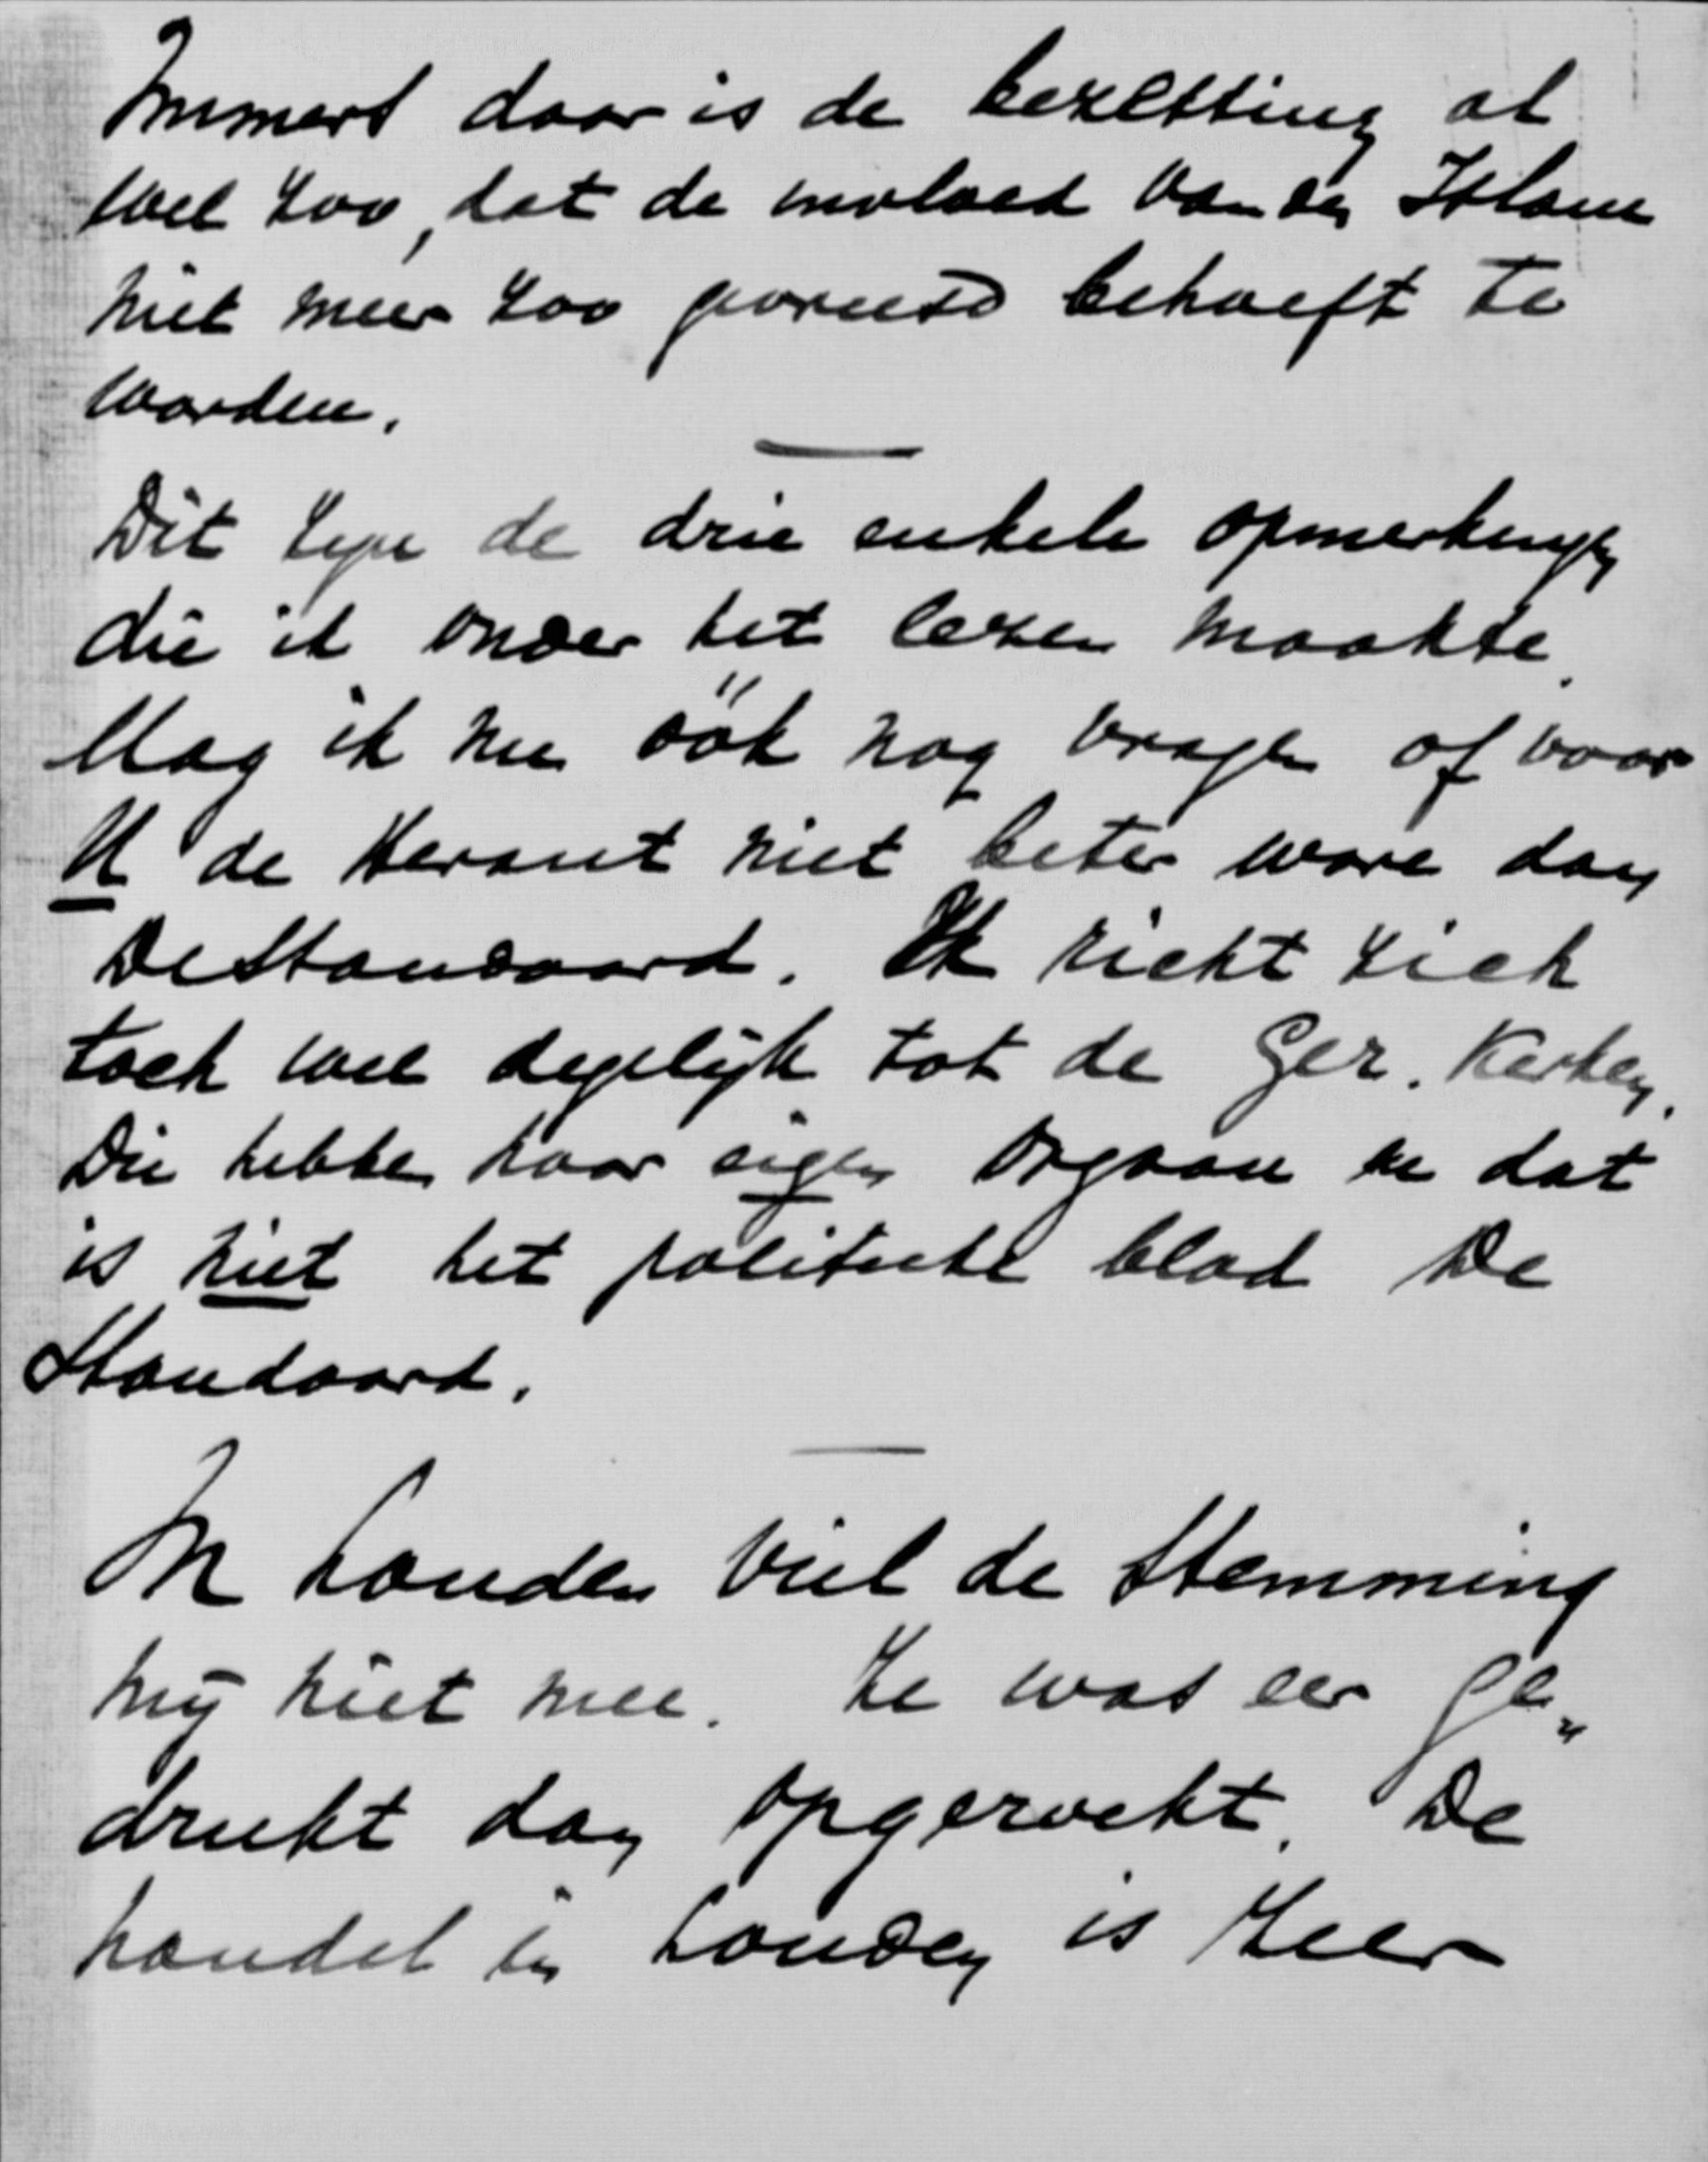 Immers daar is de bezetting al
wel zoo, dat de invloed van den Islam
niet meer zoo gevreesd behoeft te
worden.
Dit zijn de drie enkele opmerkingen
die ik onder het lezen maakte.
Mag ik nu óók nog vragen of voor
U de Heraut niet beter ware dan
De Standaard. Ik richt zich
toch wel degelijk tot de Ger. Kerken.
Die hebben haar eigen orgaan en dat
is niet het politieke blad De
Standaard.
In Londen viel de stemming
mij niet mee. Ze was eer ge„
drukt dan opgewekt. De
handel in Londen is zeer